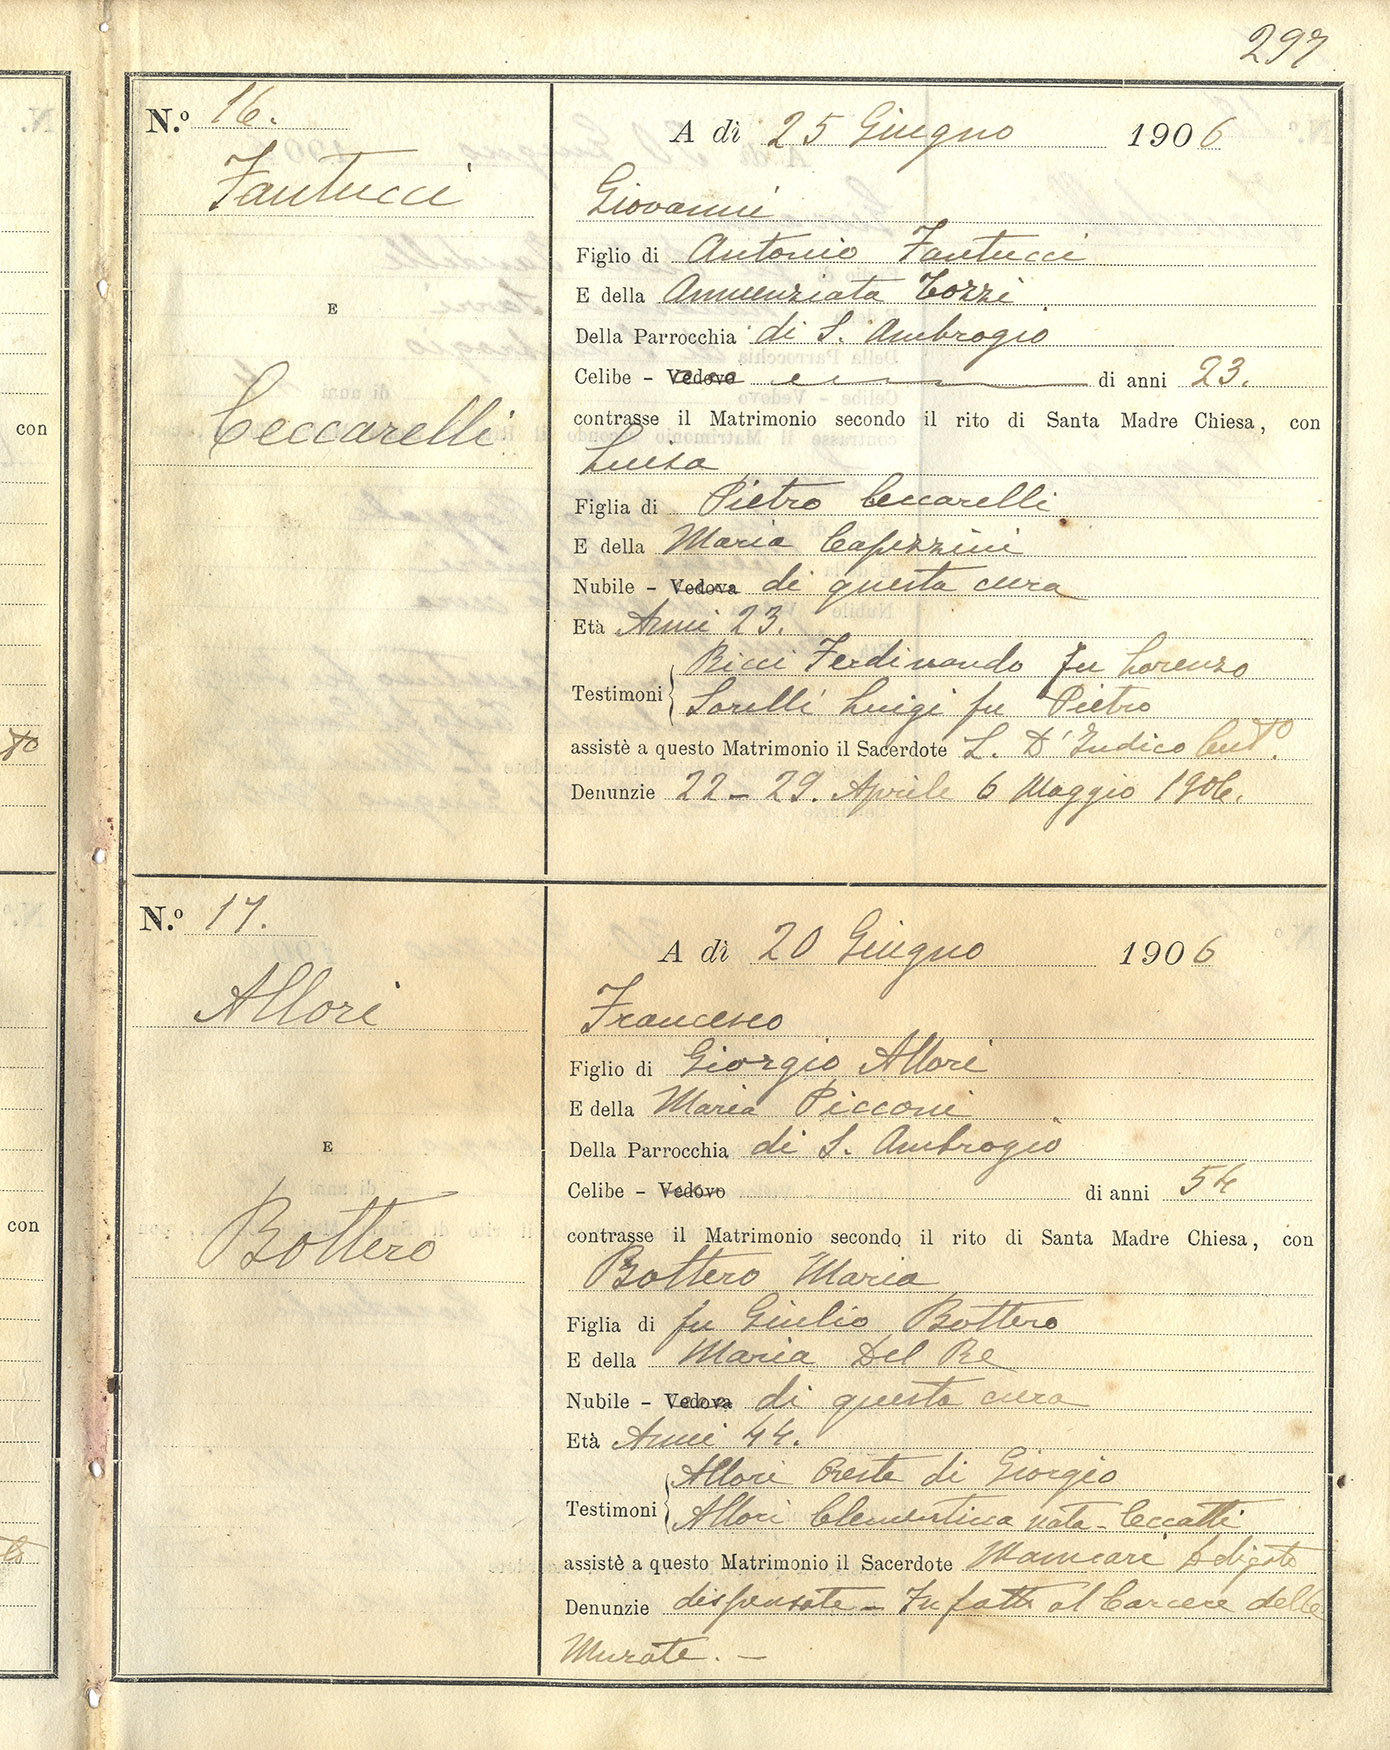 297
N.º 16.
Fantucci
E
Ceccarelli
A dì 25 Giugno 1906
Giovanni
Figlio di Antonio Fantucci
E della Annunziata Tozzi
Della Parrocchia di S. Ambrogio
Celibe - Vedovo di anni 23.
contrasse il Matrimonio secondo il rito di Santa Madre Chiesa, con
Luisa
Figlia di Pietro Ceccarelli
E della Maria Capezzini
Nubile - Vedova di questa cura
Età Anni 23.
Testimoni Ricci Ferdinando fu Lorenzo
Sorelli Luigi fu Pietro
assistè a questo Matrimonio il Sacerdote L. D'Indico Curto.
Denunzie 22 - 29. Aprile 6 Maggio 1906.
N.º 17.
Allori
E
Bottero
A dì 20 Giugno 1906
Francesco
Figlio di Giorgio Allori
E della Maria Picconi
Della Parrocchia di S. Ambrogio
Celibe - Vedovo di anni 54
contrasse il Matrimonio secondo il rito di Santa Madre Chiesa, con
Bottero Maria
Figlia di fu Giulio Bottero
E della Maria Del Re
Nubile - Vedova di questa cura
Età Anni 44.
Testimoni Allori Oreste di Giorgio
Allori Clementina nata Ceccatti
assistè a questo Matrimonio il Sacerdote
Denunzie dispensate - Fu fatto al Carcere delle
Murate. -
con
to
con